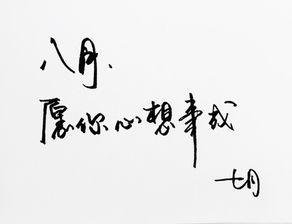 八月.
愿你心想事成
七月